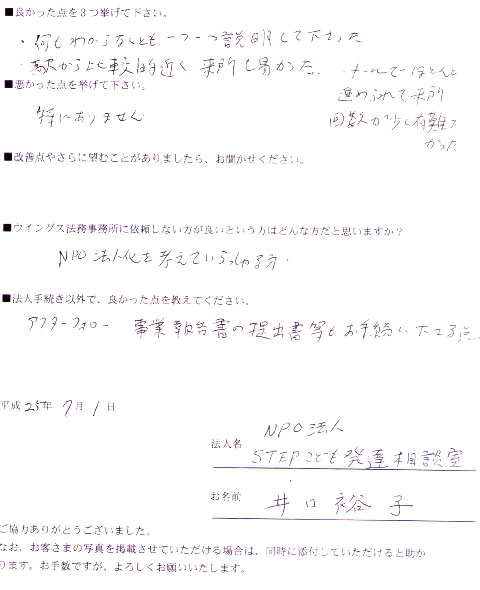 ■良かった点を３つ挙げて下さい。
・何もわからなくとも一つ一つ説明して下さった
・駅から比較的近く来所し易かった
・メールでほとんど
進められて来所
回数が少く有難
かった
■悪かった点を挙げて下さい。
特にありません
■改善点やさらに望むことがありましたら、お聞かせください。
■ウイングス法務事務所に依頼しない方が良いという方はどんな方だと思いますか？
NPO法人化を考えていらっしゃる方。
■法人手続き以外で、良かった点を教えてください。
アフターフォロー 事業報告書の提出書等もお手続い下さる点。
平成 25年 7月 1日
NPO法人
法人名 STEPこども発達相談室
お名前 井口 裕子
ご協力ありがとうございました。
なお、お客さまの写真を掲載させていただける場合は、同時に添付していただけると助か
ります。お手数ですが、よろしくお願いいたします。